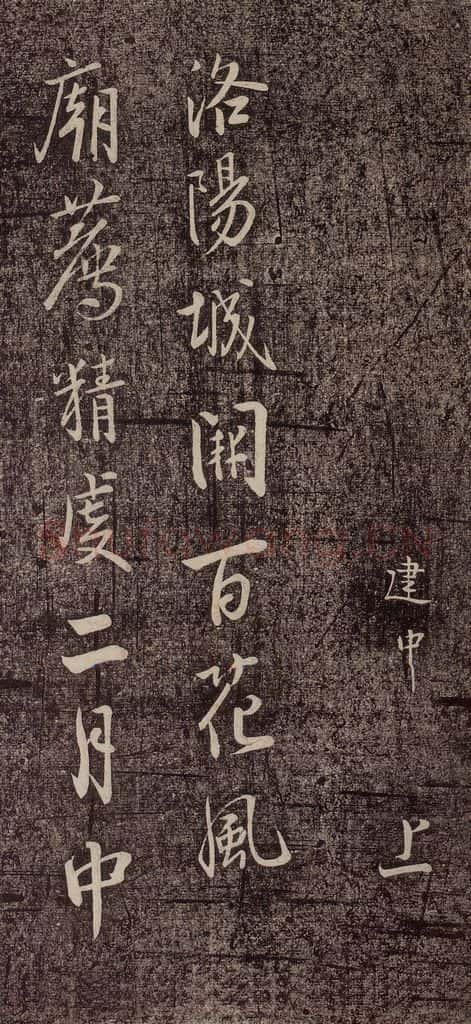 建中 上
洛陽城開百花風
廟薦精虔二月中